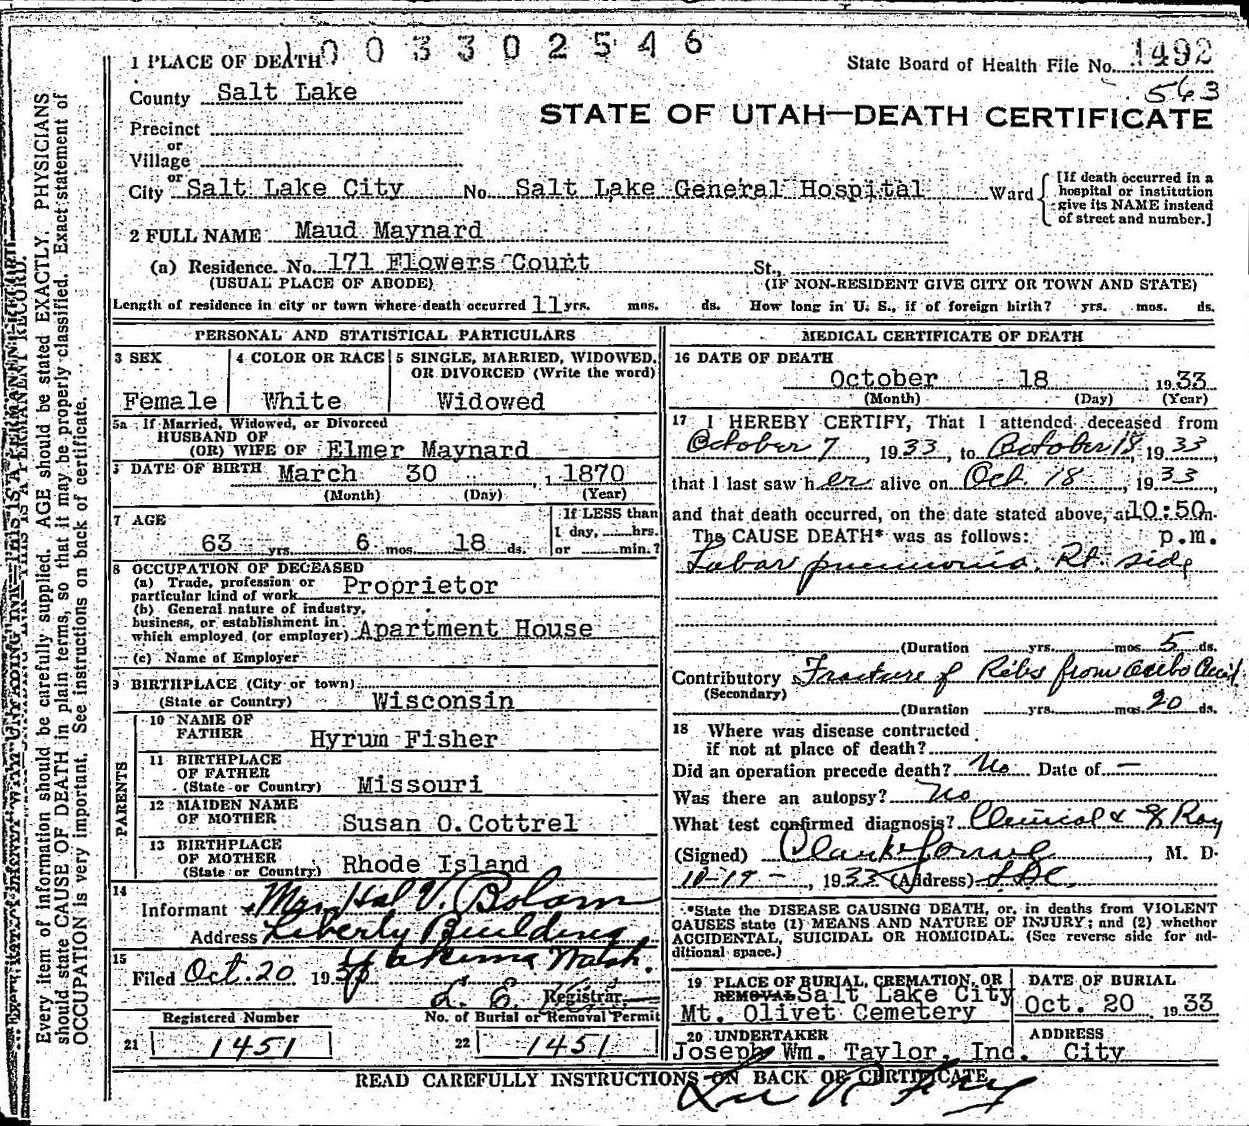 1003302546
1 PLACE OF DEATH
State Board of Health File No. 1492
563
County Salt Lake
STATE OF UTAH—DEATH CERTIFICATE
Precinct
or
Village
or
City Salt Lake City No. Salt Lake General Hospital Ward
[If death occurred in a
hospital or institution
give its NAME instead
of street and number.]
2 FULL NAME Maud Maynard
(a) Residence. No. 171 Flowers Court St.,
(USUAL PLACE OF ABODE) (IF NON-RESIDENT GIVE CITY OR TOWN AND STATE)
Length of residence in city or town where death occurred 11 yrs. mos. ds. How long in U. S., if of foreign birth? yrs. mos. ds.
PERSONAL AND STATISTICAL PARTICULARS
3 SEX 4 COLOR OR RACE 5 SINGLE, MARRIED, WIDOWED,
OR DIVORCED (Write the word)
Female White Widowed
5a If Married, Widowed, or Divorced
HUSBAND OF
(OR) WIFE OF Elmer Maynard
DATE OF BIRTH March 30, 1870
(Month) (Day) (Year)
7 AGE If LESS than
1 day, hrs.
63 yrs. 6 mos. 18 ds. or min.?
8 OCCUPATION OF DECEASED
(a) Trade, profession or
particular kind of work Proprietor
(b) General nature of industry,
business, or establishment in
which employed (or employer) Apartment House
(c) Name of Employer
9 BIRTHPLACE (City or town)
(State or Country) Wisconsin
PARENTS
10 NAME OF
FATHER Hyrum Fisher
11 BIRTHPLACE
OF FATHER
(State or Country) Missouri
12 MAIDEN NAME
OF MOTHER Susan O. Cottrel
13 BIRTHPLACE
OF MOTHER
(State or Country) Rhode Island
14
Informant Mrs Hal V. Bolam
Address Liberty Building
Yakima Wash.
15
Filed Oct. 20 19
L. E. Registrar
Registered Number No. of Burial or Removal Permit
21 1451 22 1451
MEDICAL CERTIFICATE OF DEATH
16 DATE OF DEATH
October 18 1933
(Month) (Day) (Year)
17 I HEREBY CERTIFY, That I attended deceased from
October 7, 1933, to October 18, 1933,
that I last saw her alive on Oct. 18, 1933,
and that death occurred, on the date stated above, at 10:50 m.
The CAUSE DEATH* was as follows: p.m.
Lobar pneumonia. Rt. side
(Duration yrs. mos. 5 ds.
Contributory Fracture of Ribs from Auto Acid
(Secondary)
(Duration yrs. mos. 20 ds.
18 Where was disease contracted
if not at place of death?
Did an operation precede death? No Date of —
Was there an autopsy? No
What test confirmed diagnosis? Clinical & X Ray
(Signed) Clark, M. D.
10-19-, 1933 (Address) SLC.
*State the DISEASE CAUSING DEATH, or, in deaths from VIOLENT
CAUSES state (1) MEANS AND NATURE OF INJURY; and (2) whether
ACCIDENTAL, SUICIDAL OR HOMICIDAL. (See reverse side for ad-
ditional space.)
19 PLACE OF BURIAL, CREMATION, OR DATE OF BURIAL
REMOVAL Salt Lake City
Mt. Olivet Cemetery Oct. 20 1933
20 UNDERTAKER ADDRESS
Joseph Wm. Taylor, Inc. City
READ CAREFULLY INSTRUCTIONS ON BACK OF CERTIFICATE
Every item of information should be carefully supplied. AGE should be stated EXACTLY. PHYSICIANS
should state CAUSE OF DEATH in plain terms, so that it may be properly classified. Exact statement of
OCCUPATION is very important. See instructions on back of certificate.